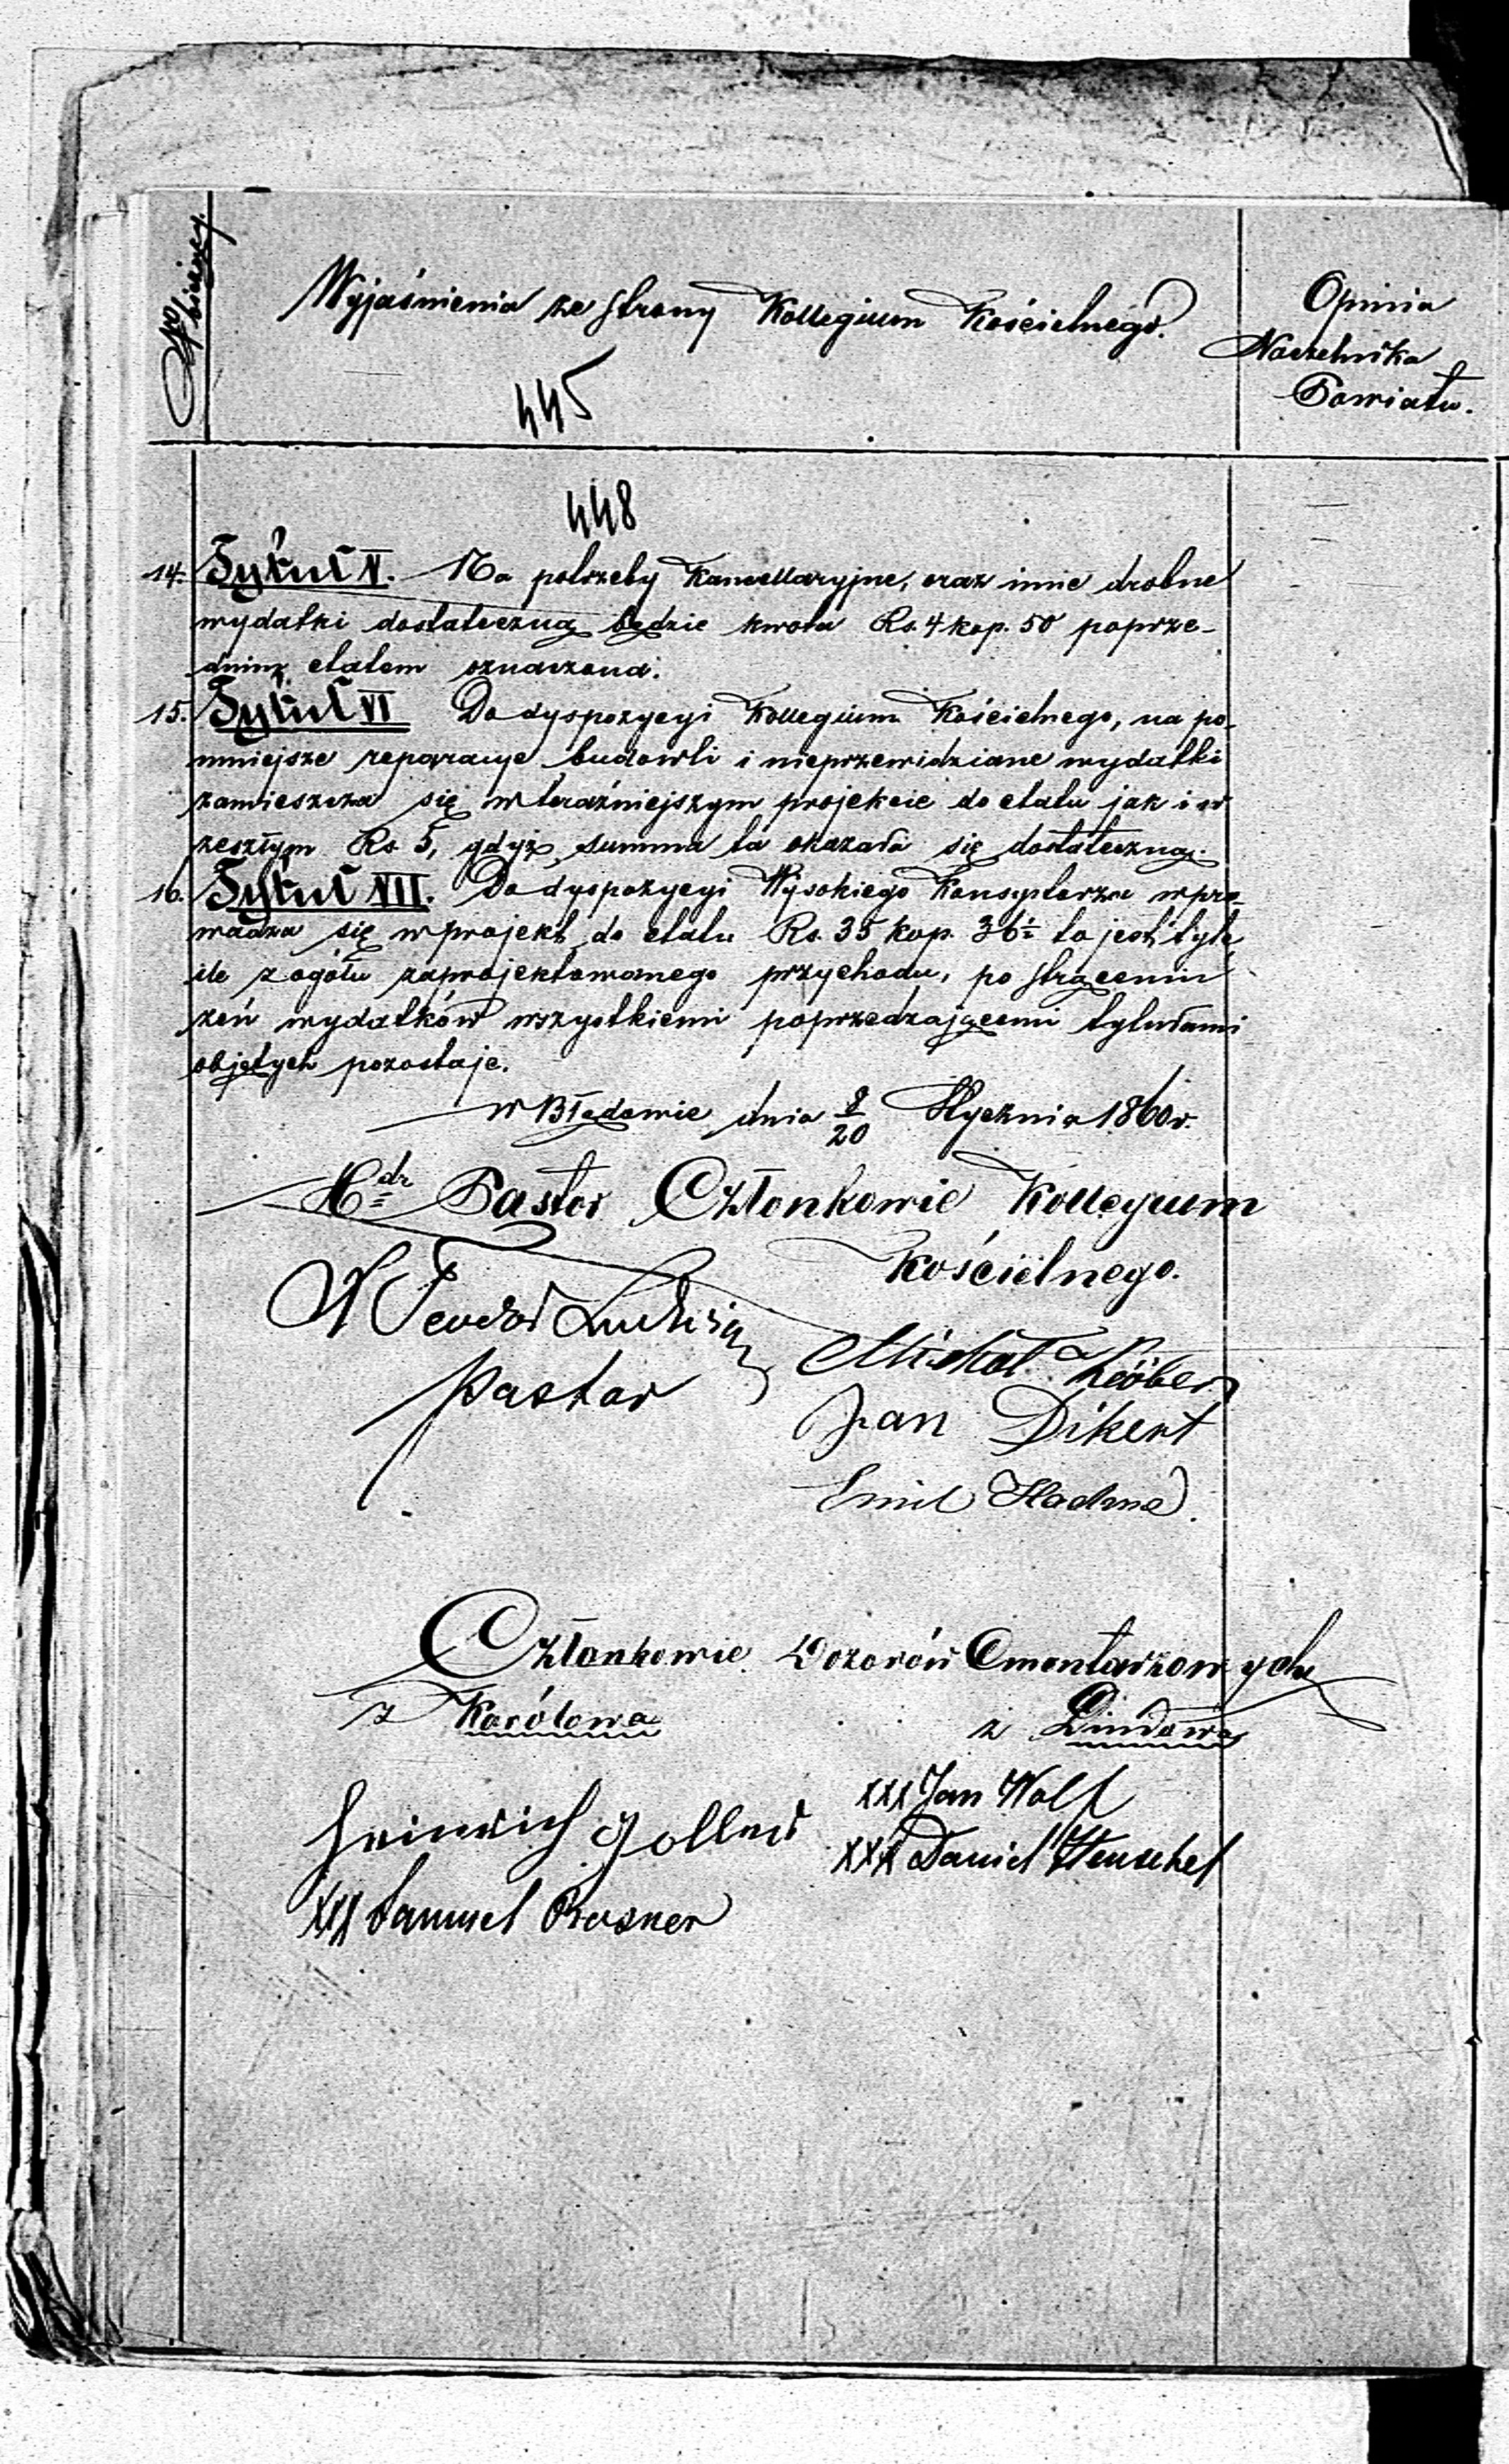 No bieżący.
Wyjaśnienia ze strony Kollegium Kościelnego.
Opinia
Naczelnika
Powiatu.
445
448
14. Tytuł V. Na potrzeby Kancellaryjne, oraz inne drobne
wydatki dostateczną będzie kwota Rs. 4 kop. 50 poprze-
dnim etatem oznaczona.
15. Tytuł VI Do dyspozycyi Kollegium Kościelnego, na po-
mniejsze reparacye budowli i nieprzewidziane wydatki
zamieszcza się w teraźniejszym projekcie do etatu jak i w
zeszłym Rs 5, gdyż summa ta okazała się dostateczną.
16. Tytuł VII. Do dyspozycyi Wysokiego Konsystorza wpro-
wadza się w projekt do etatu Rs. 35 kop. 36 to jest tyle
ile z ogółu zaprojektowanego przychodu, po strąceniu
zeń wydatków wszystkiemi poprzedzającemi tytułami
objętych pozostaje.
w Błędowie dnia 8/20 Stycznia 1860 r.
Pastor Członkowie Kollegium
Kościelnego.
Teodor
Pastor
Michał
Jan Dikert
Emil
Członkowie Dozorów Cmentarzowych
z Karólowa
z Lindowa
xxx Jan Wolf
Heinrich
xxx Daniel Henschel
xxx Samuel Rosner